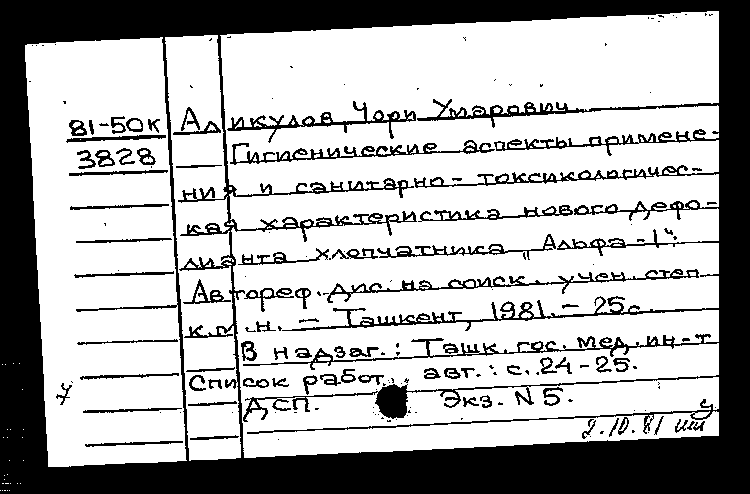 81-50К Аликулов, Чори Умарович.
3828 Гигиенические аспекты примене-
ния и санитарно-токсикологичес-
кая характеристика нового дефо-
лианта хлопчатника „Альфа-1“:
Автореф. дис. на соиск. учен. степ.
к.м.н. – Ташкент, 1981. – 25с.
В надзаг.: Ташк. гос. мед. ин-т
Список работ авт.: с. 24-25.
ДСП. Экз. N 5.
2.10.81